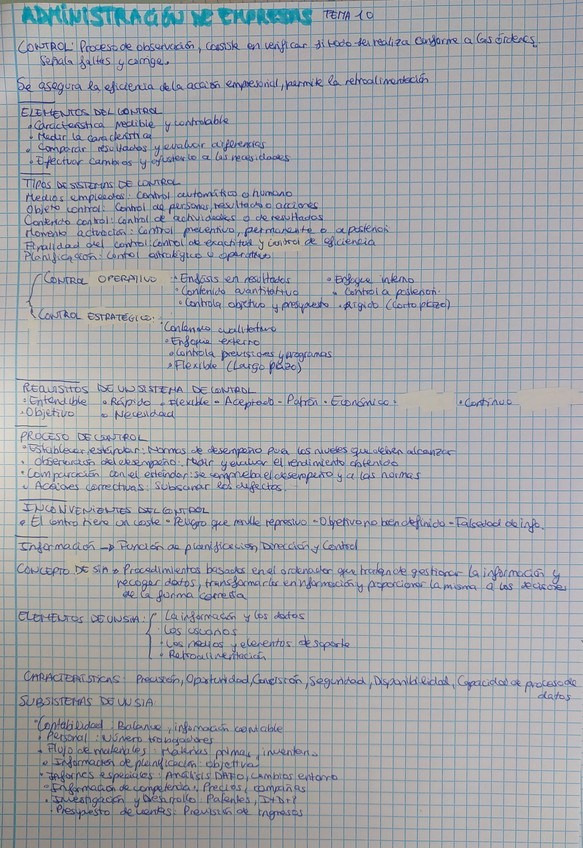 ADMINISTRACIÓN DE EMPRESAS TEMA 10
CONTROL: Proceso de observación, consiste en verificar si todo se realiza conforme a las órdenes.
Señala faltas y corrige.
Se asegura la eficiencia de la acción empresarial, permite la retroalimentación
ELEMENTOS DEL CONTROL
• Característica medible y controlable
• Medir la característica
• Comparar resultados y evaluar diferencias
• Efectuar cambios y ajustarlo a las necesidades
TIPOS DE SISTEMAS DE CONTROL
Medios empleados: Control automático o humano
Objeto control: Control de personas, resultado o acciones
Contenido control: Control de actividades o de resultados
Momento activación: Control preventivo, permanente o a posteriori
Finalidad del control: control de exactitud y control de eficiencia
Planificación: Control estratégico u operativo
CONTROL OPERATIVO • Énfasis en resultados • Enfoque interno
• Contenido cuantitativo • Control a posteriori
• Controla objetivo y presupuesto • Rígido (Corto plazo)
CONTROL ESTRATÉGICO:
• Contenido cualitativo
• Enfoque externo
• Controla previsiones y programas
• Flexible (Largo plazo)
REQUISITOS DE UN SISTEMA DE CONTROL
• Entendible • Rápido - Flexible - Aceptado - Patrón - Económico • • Continuo
• Objetivo • Necesidad
PROCESO DE CONTROL
• Establecer estándar: Normas de desempeño para los niveles que deben alcanzar
• Observación del desempeño: Medir y evaluar el rendimiento obtenido
• Comparación con el estándar: se comprueba el desempeño y a las normas
• Acciones correctivas: Subsanar los defectos.
INCONVENIENTES DEL CONTROL
• El control tiene un coste - Peligro que resulte represivo - Objetivo no bien definido - Falsedad de info.
Información → Función de planificación, Dirección y Control
CONCEPTO DE SIA • Procedimientos basados en el ordenador que tratan de gestionar la información y
recoger datos, transformarlos en información y proporcionar la misma a los decisores
de la forma correcta
ELEMENTOS DE UN SIA: • La información y los datos
• Los usuarios
• Los medios y elementos de soporte
• Retroalimentación
CARACTERÍSTICAS: Precisión, Oportunidad, Concisión, Seguridad, Disponibilidad, Capacidad de proceso de
datos
SUBSISTEMAS DE UN SIA
• Contabilidad: Balance, información contable
• Personal: Número trabajadores
• Flujo de materiales: Materias primas, inventan..
• Información de planificación: objetivos
• Informes especiales: Análisis DAFO, cambios entorno
• Información de competencia: Precios, campañas
• Investigación y Desarrollo: Patentes, I+D+I
• Presupuesto de ventas: Previsión de ingresos